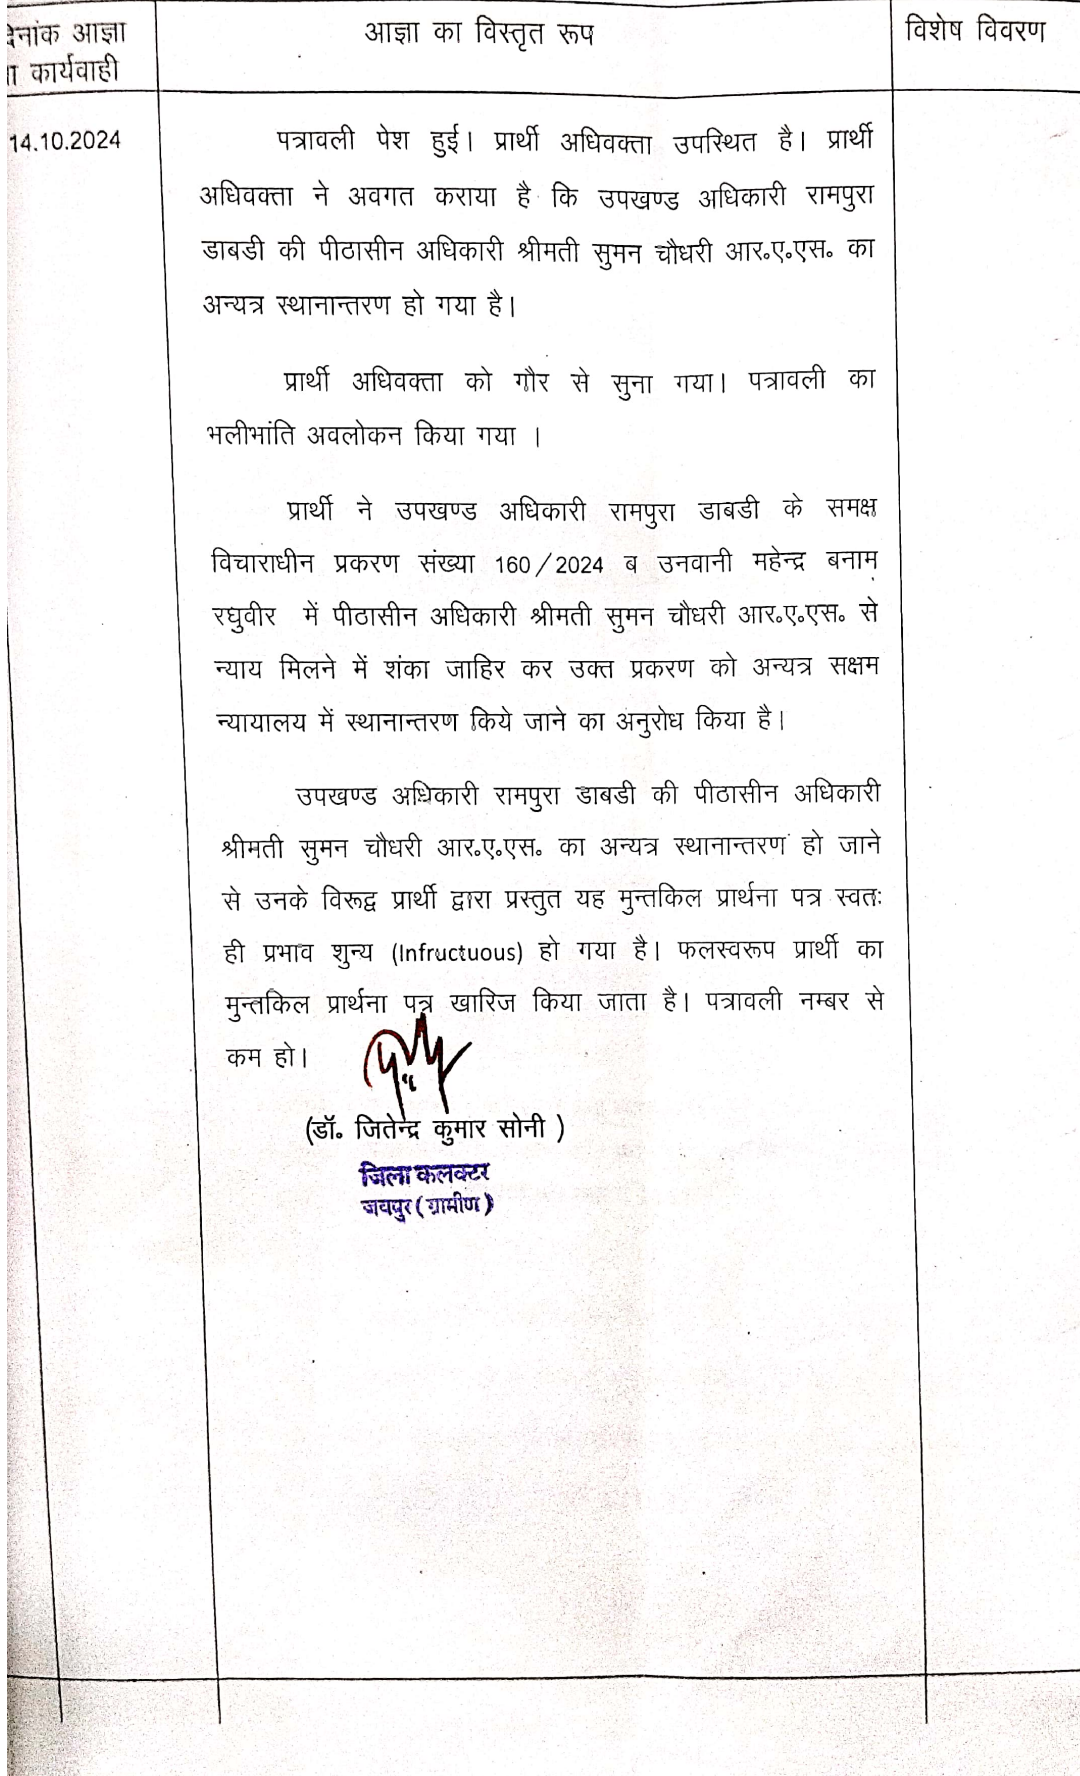 दिनांक आज्ञा
या कार्यवाही
आज्ञा का विस्तृत रूप
विशेष विवरण
14.10.2024
पत्रावली पेश हुई। प्रार्थी अधिवक्ता उपस्थित है। प्रार्थी
अधिवक्ता ने अवगत कराया है कि उपखण्ड अधिकारी रामपुरा
डाबडी की पीठासीन अधिकारी श्रीमती सुमन चौधरी आर.ए.एस. का
अन्यत्र स्थानान्तरण हो गया है।
प्रार्थी अधिवक्ता को गौर से सुना गया। पत्रावली का
भलीभांति अवलोकन किया गया ।
प्रार्थी ने उपखण्ड अधिकारी रामपुरा डाबडी के समक्ष
विचाराधीन प्रकरण संख्या 160/2024 ब उनवानी महेन्द्र बनाम
रघुवीर में पीठासीन अधिकारी श्रीमती सुमन चौधरी आर.ए.एस. से
न्याय मिलने में शंका जाहिर कर उक्त प्रकरण को अन्यत्र सक्षम
न्यायालय में स्थानान्तरण किये जाने का अनुरोध किया है।
उपखण्ड अधिकारी रामपुरा डाबडी की पीठासीन अधिकारी
श्रीमती सुमन चौधरी आर.ए.एस. का अन्यत्र स्थानान्तरण हो जाने
से उनके विरूद्व प्रार्थी द्वारा प्रस्तुत यह मुन्तकिल प्रार्थना पत्र स्वतः
ही प्रभाव शुन्य (Infructuous) हो गया है। फलस्वरूप प्रार्थी का
मुन्तकिल प्रार्थना पत्र खारिज किया जाता है। पत्रावली नम्बर से
कम हो।
(डॉ. जितेन्द्र कुमार सोनी )
जिला कलक्टर
जयपुर (ग्रामीण)